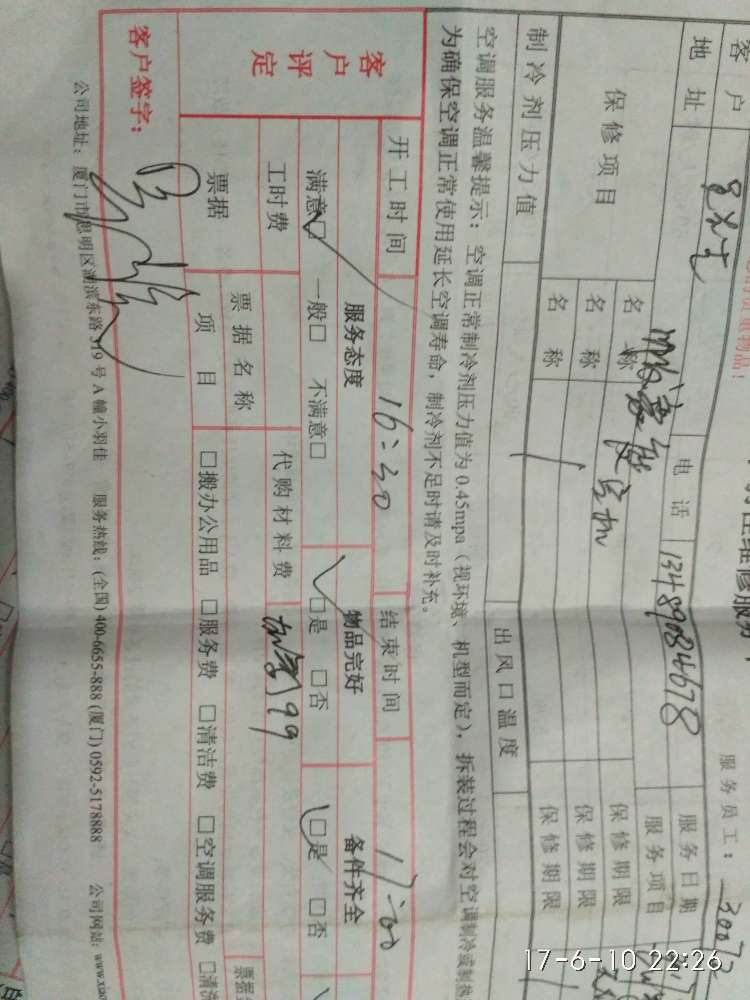 服务员工：3007
客户
电话 13489084678
服务日期
地址
服务项目
保修项目
名称
保修期限
名称
保修期限
名称
保修期限
制冷剂压力值
出风口温度
空调服务温馨提示：空调正常制冷剂压力值为0.45mpa（视环境、机型而定），拆装过程会对空调制冷或制热
为确保空调正常使用延长空调寿命，制冷剂不足时请及时补充。
客户评定
开工时间 16:30 结束时间 17:00
服务态度 物品完好 备件齐全
满意□ 一般□ 不满意□ □是 □否 □是 □否
工时费 代购材料费 99
票据 票据名称
项目 □搬办公用品 □服务费 □清洁费 □空调服务费
客户签字：
公司地址：厦门市思明区湖滨东路319号A幢小羽佳 服务热线：(全国) 400-6655-888 (厦门) 0592-5178888 公司网站：www.xiao
17-6-10 22:26